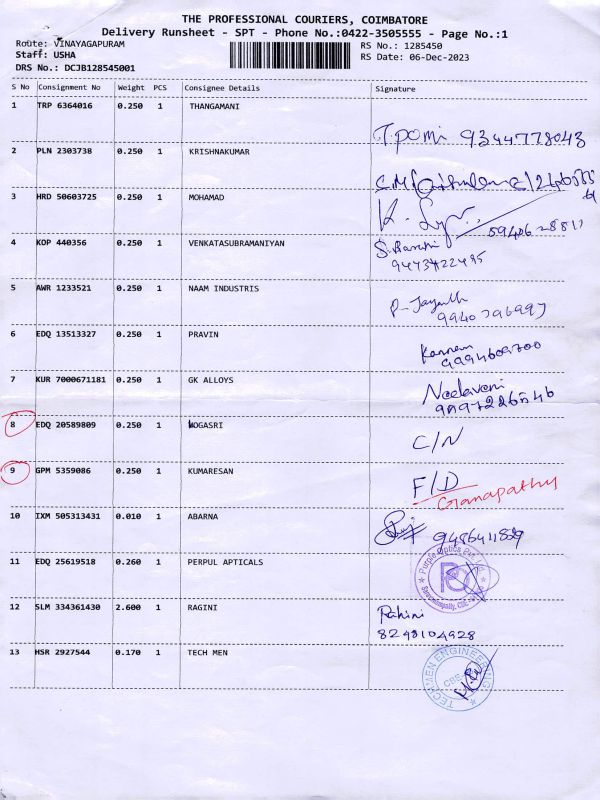 THE PROFESSIONAL COURIERS, COIMBATORE
Delivery Runsheet - SPT - Phone No.:0422-3505555 - Page No.:1
Route: VINAYAGAPURAM
Staff: USHA
DRS No.: DCJB128545001
RS No.: 1285450
RS Date: 06-Dec-2023
S No Consignment No Weight PCS Consignee Details Signature
1 TRP 6364016 0.250 1 THANGAMANI
T.pomi 9344778043
2 PLN 2303738 0.250 1 KRISHNAKUMAR
3 HRD 50603725 0.250 1 MOHAMAD
4 KOP 440356 0.250 1 VENKATASUBRAMANIYAN
5 AWR 1233521 0.250 1 NAAM INDUSTRIS
6 EDQ 13513327 0.250 1 PRAVIN
Kannan
7 KUR 7000671181 0.250 1 GK ALLOYS
Neelaveni
8 EDQ 20589809 0.250 1 LOGASRI
C/N
9 GPM 5359086 0.250 1 KUMARESAN
F/D
Ganapathy
10 IXM 505313431 0.010 1 ABARNA
11 EDQ 25619518 0.260 1 PERPUL APTICALS
Purple Optics Pvt. Ltd.
PO
12 SLM 334361430 2.600 1 RAGINI
Rahini
8248104928
13 HSR 2927544 0.170 1 TECH MEN
TECHMEN ENGINEERING
CBE